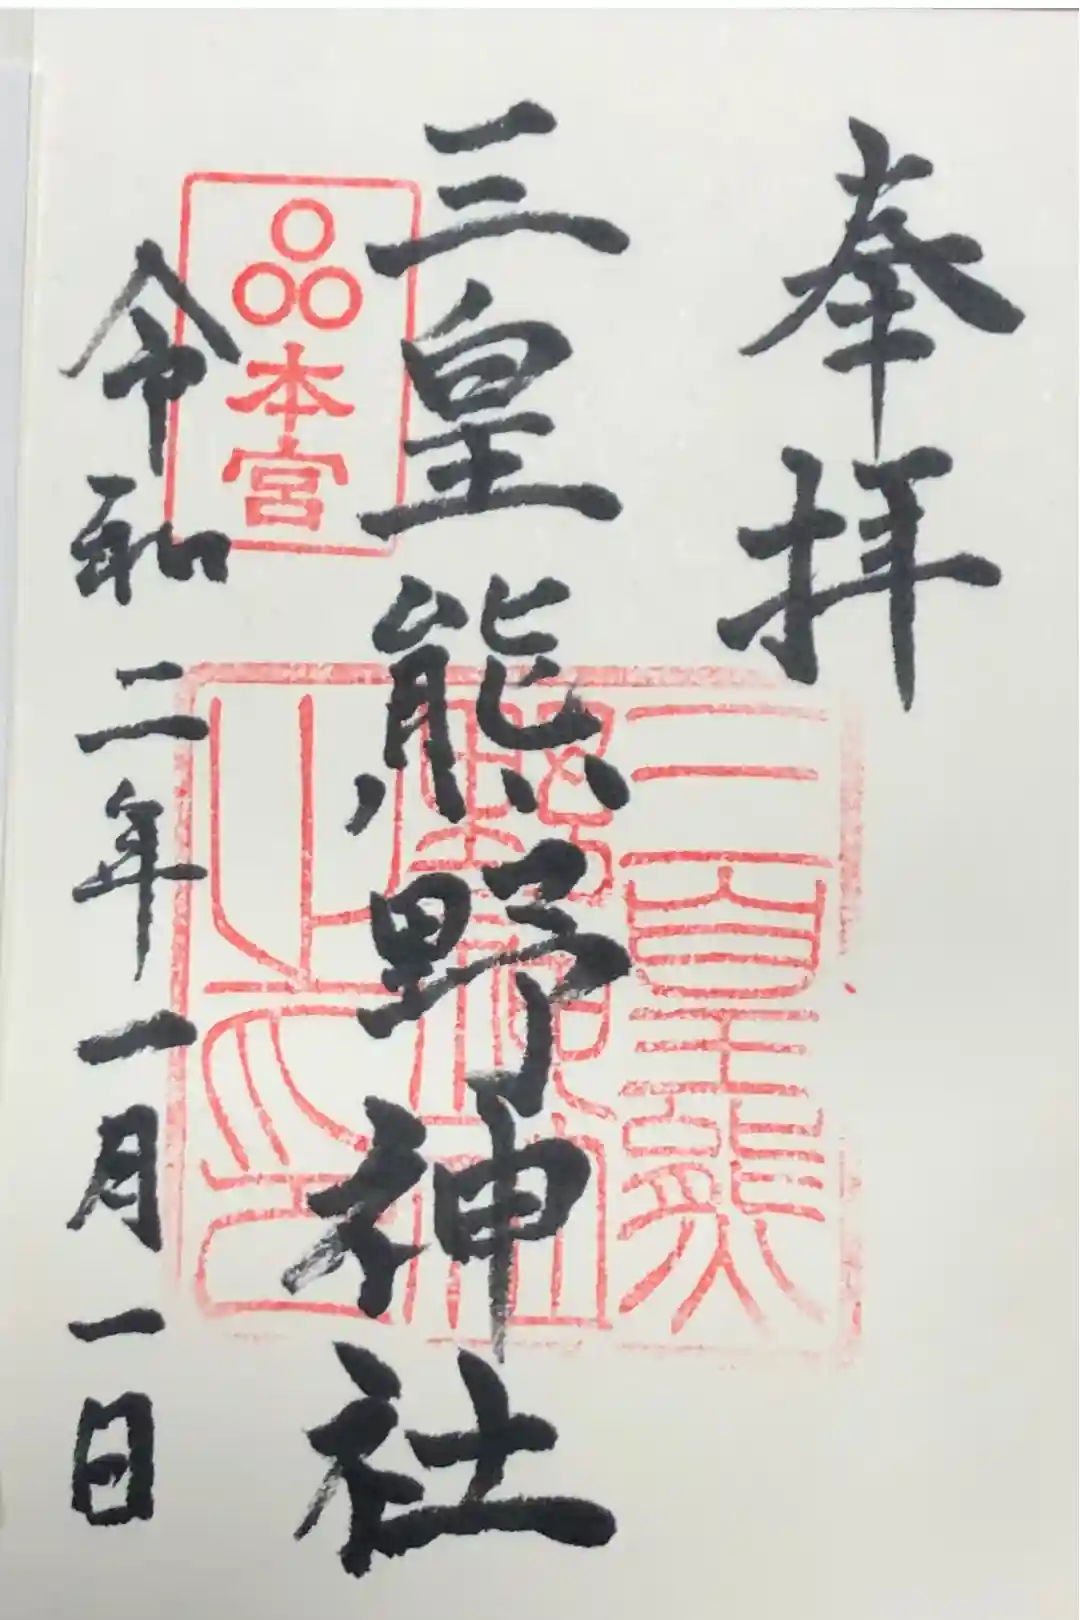 奉拝
三皇熊野神社
本宮
三皇熊野神社之印
令和二年一月一日